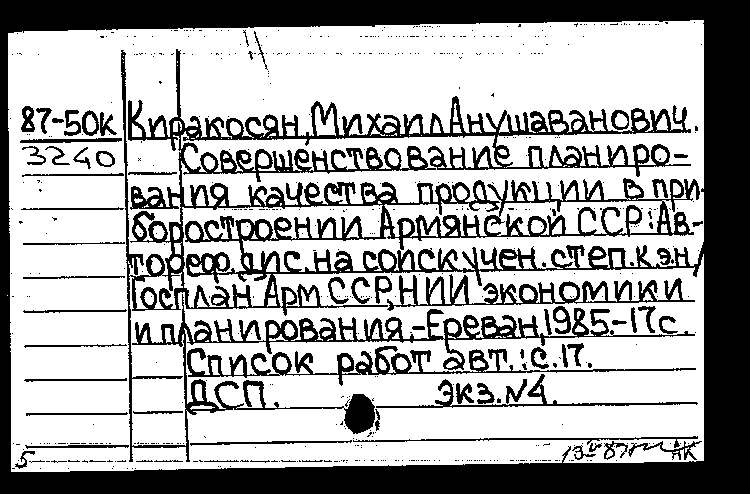 87-50к Киракосян, Михаил Анушаванович.
3240 Совершенствование планиро-
вания качества продукции в при-
боростроении Армянской ССР: Ав-
тореф. дис. на соиск. учен. степ. к.эн/
Госплан Арм ССР, НИИ экономики
и планирования. - Ереван, 1985. - 17 с.
Список работ авт.: с. 17.
ДСП. экз. №4.
5